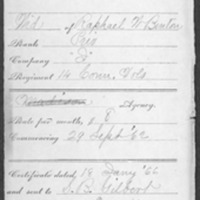 Wid of Raphael W Benton
Rank Priv
Company "E"
Regiment 14 Conn. Vols
Madison Agency.
Rate per month, $ 8
Commencing 29 Sept '62
Certificate dated, 18
and sent to S. C. Gilbert